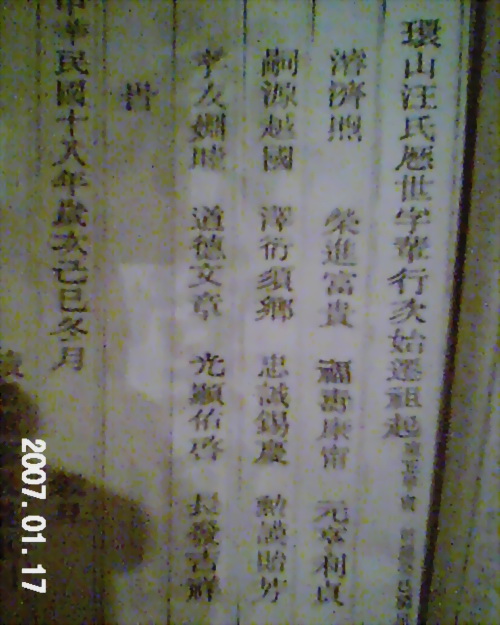 環山汪氏歷世字輩行次始遷祖起
濟濟 榮進富貴 福壽康甯 元亨利貞
嗣源越國 澤衍須鄉 忠誠錫慶 勲謨貽
孝友婣睦 道德文章 光顯佑啓 長發吉祥
中華民國十八年歲次己巳冬月
2007.01.17